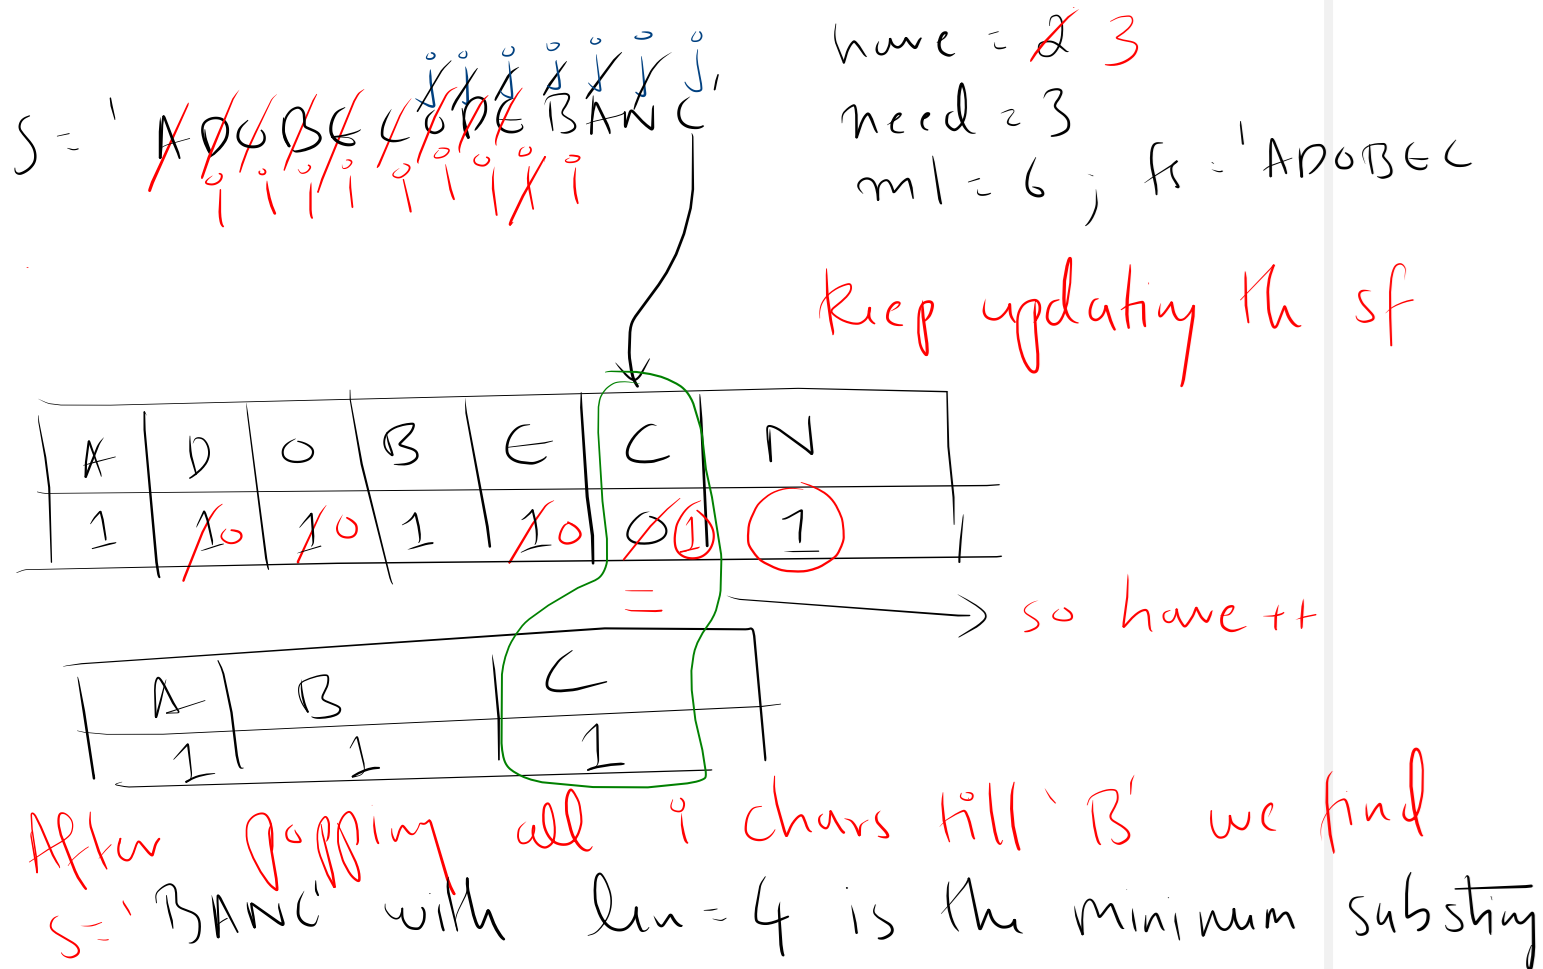 have = 2 3
j j j j j j j
S = ' ADOBECODEBANC '
need = 3
i i i i i i i i i i
ml = 6 ; fs = 'ADOBEC
keep updating th sf
A D O B E C N
1 1 0 1 0 1 1 0 0 1 1
=
so have ++
A B C
1 1 1
After popping all i chars till 'B' we find
S = 'BANC' with len = 4 is the minimum substring